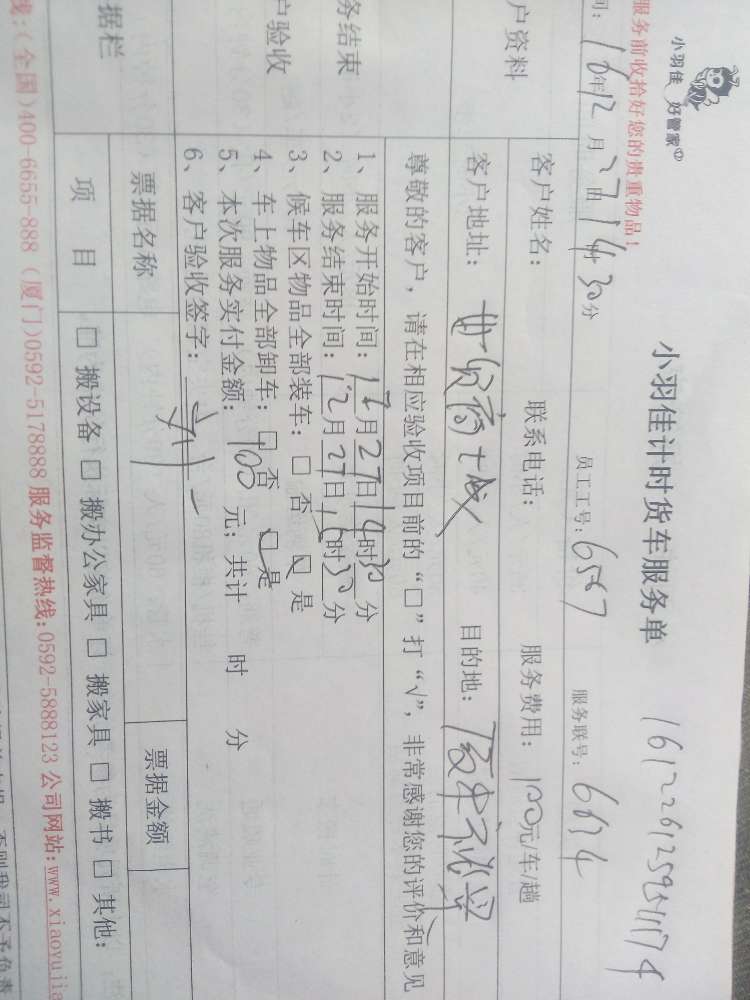 小羽佳 好管家
服务前收拾好您的贵重物品!
小羽佳计时货车服务单
间: 16年12月27日14时30分 员工工号: 6567 服务联号: 6634
户资料 客户姓名: 联系电话: 服务费用: 100元/车/趟
客户地址: 目的地:
尊敬的客户, 请在相应验收项目前的“□”打“√”, 非常感谢您的评价和意见
务结束
户验收
1、服务开始时间: 12月27日14时30分
2、服务结束时间: 12月27日16时30分
3、候车区物品全部装车: □ 否 □ 是
4、车上物品全部卸车: □ 否 □ 是
5、本次服务实付金额: 700 元; 共计 时 分
6、客户验收签字:
据栏 票据名称 票据金额
项 目 □ 搬设备 □ 搬办公家具 □ 搬家具 □ 搬书 □ 其他:
线:(全国)400-6655-888 (厦门)0592-5178888 服务监督热线:0592-5888123 公司网站:www.xiaoyujia